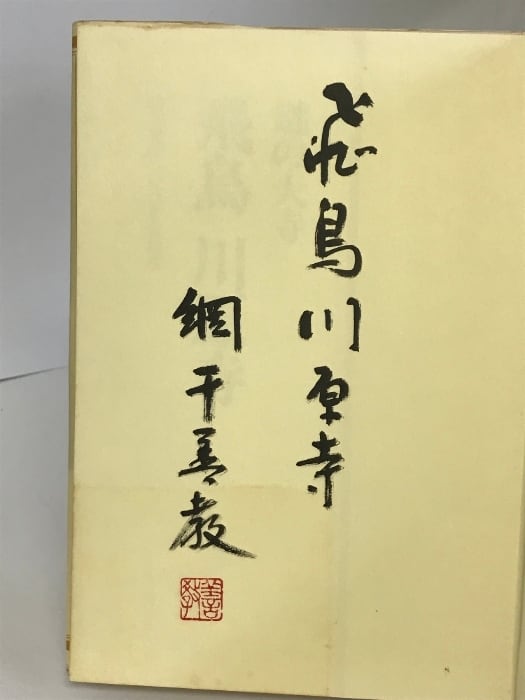 飛鳥川原寺
網干善教
善教